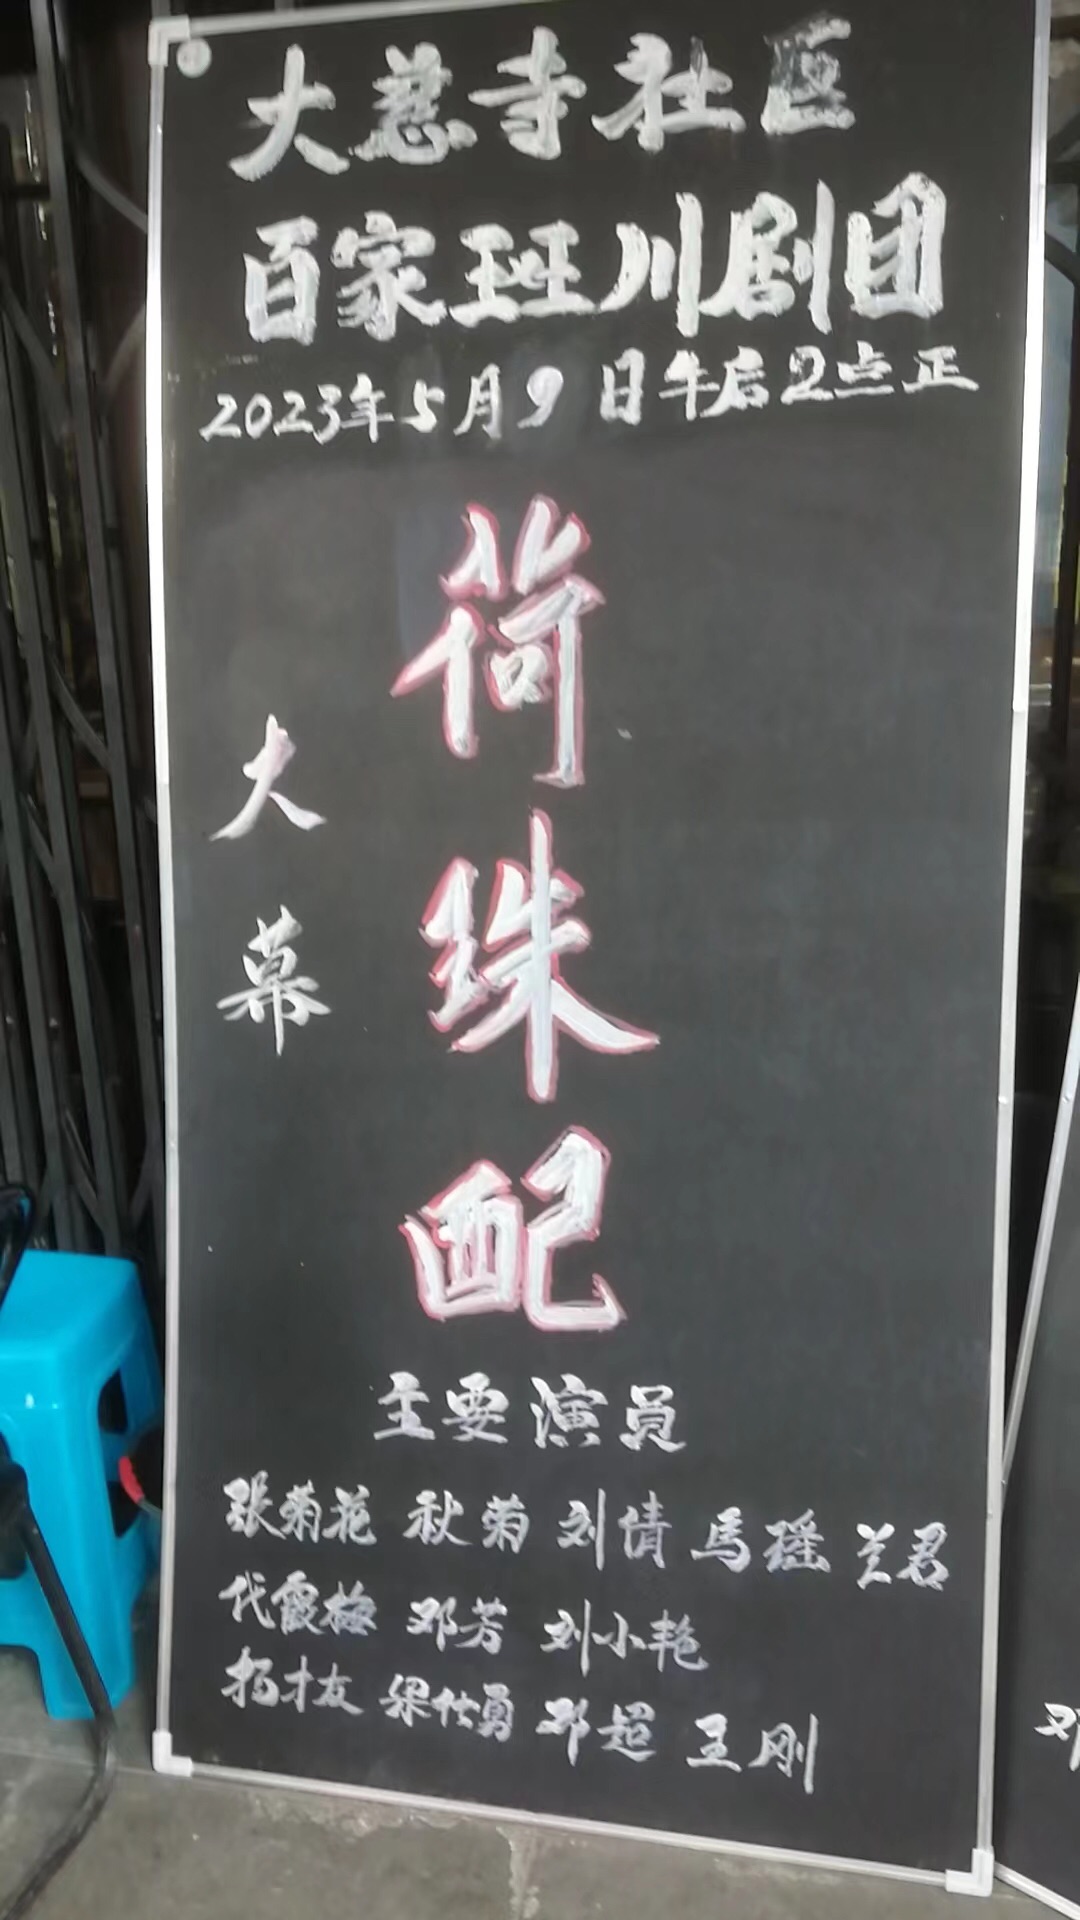 大慈寺社区
百家班川剧团
2023年5月9日午后2点正
大幕
荷珠配
主要演员
张菊花 秋菊 刘倩 马瑶 兰君
代霞梅 邓芳 刘小艳
杨才友 梁仕勇 邓超 王刚
邓